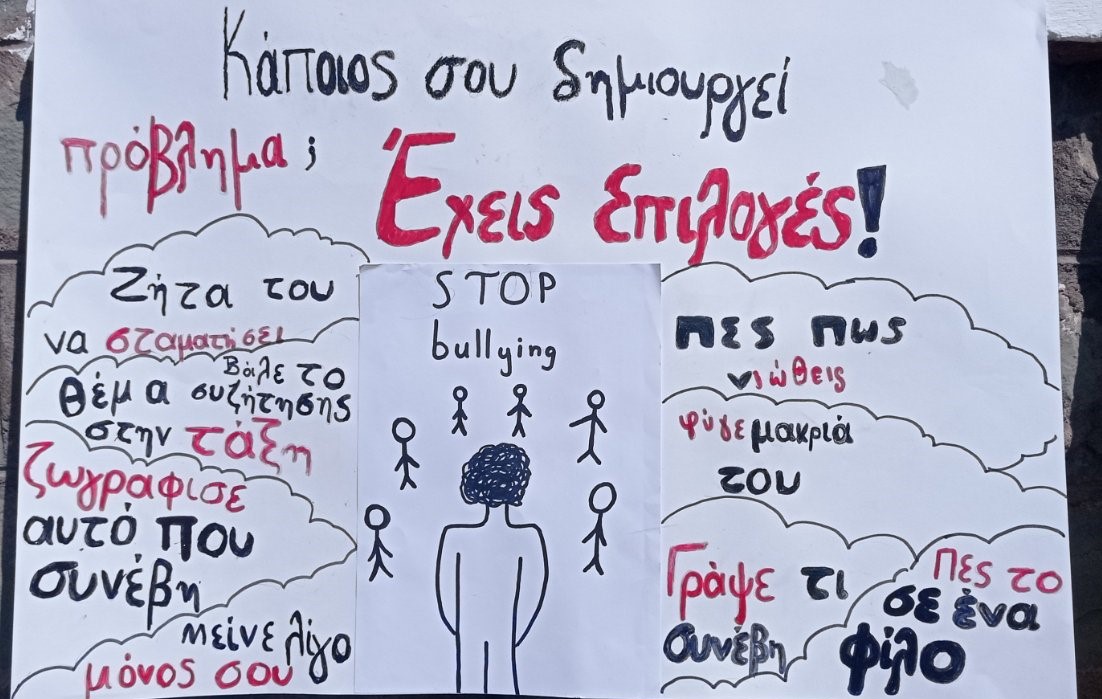 Κάποιος σου δημιουργεί
πρόβλημα; Έχεις Επιλογές!
Ζήτα του
να σταματήσει
Βάλε το
θέμα συζήτησης
στην τάξη
ζωγραφισε
αυτό που
συνέβη
μείνε λίγο
μόνος σου
STOP
bullying
πες πως
νιώθεις
φύγε μακριά
του
Γράψε τι
συνέβη
Πες το
σε ένα
φίλο